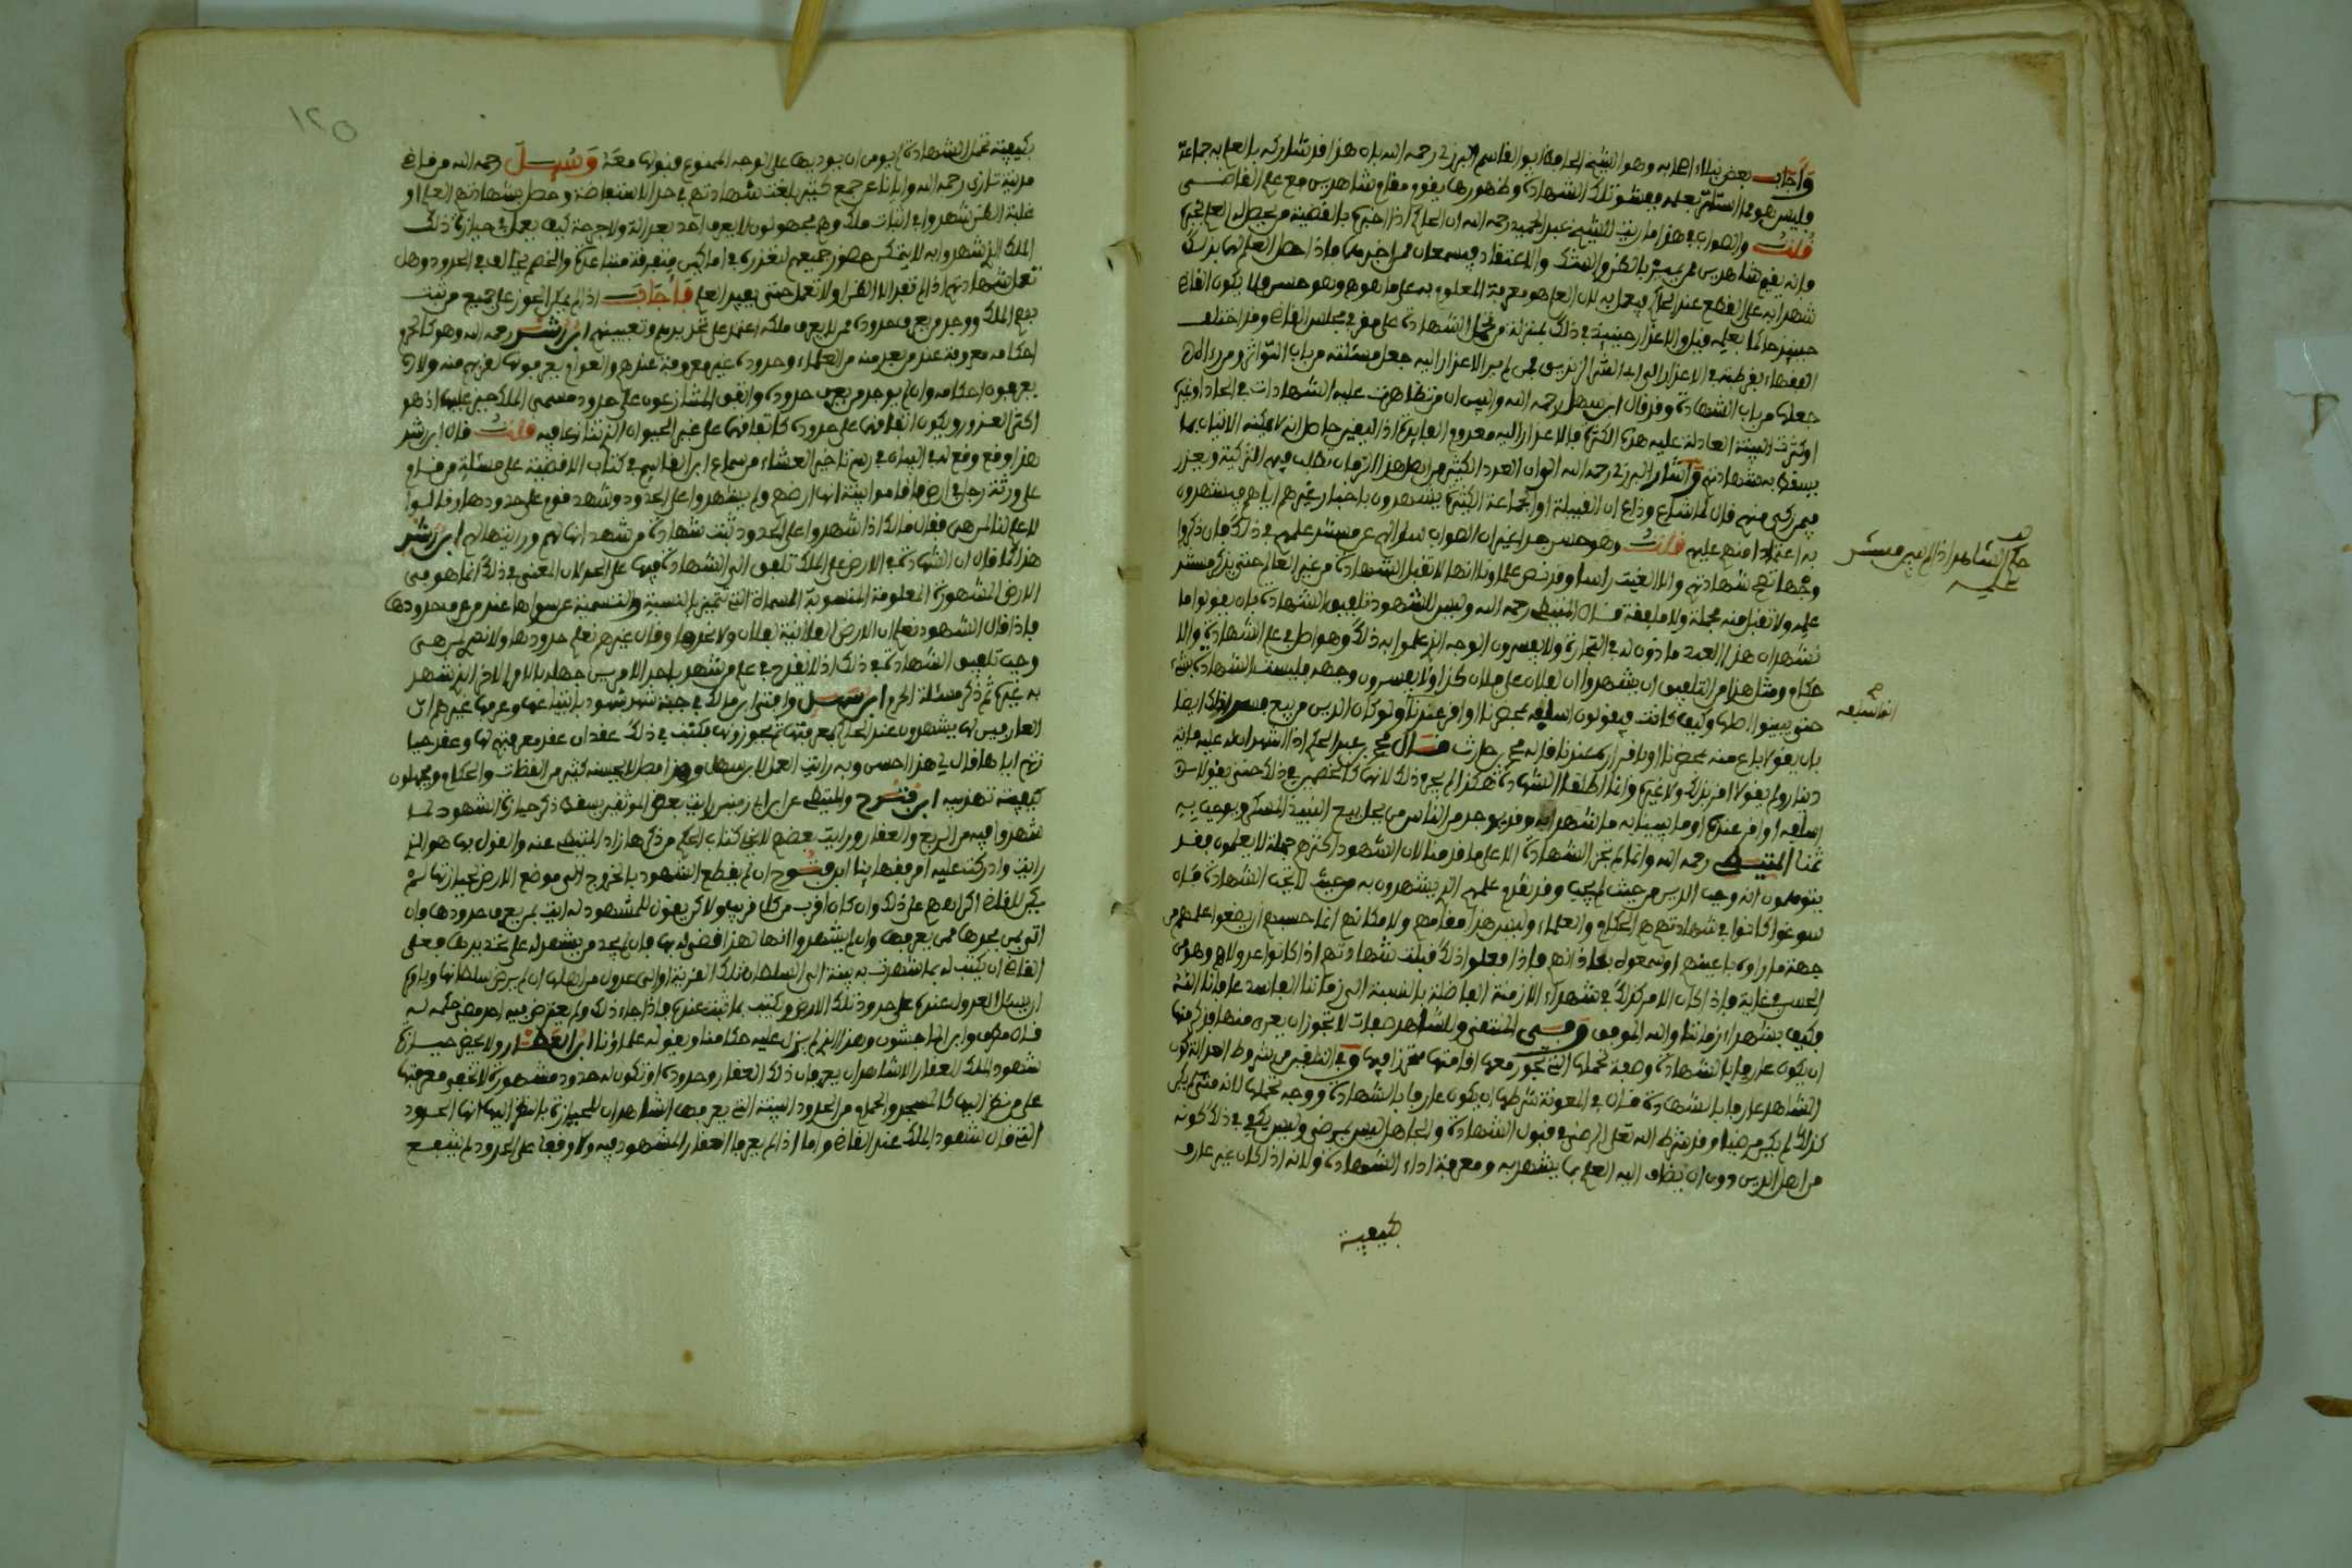 وأجاب بعض نبلاء اصحابه وهو الشيخ الحافظ ابو القاسم البرزلي رحمه الله بان هذا قد شاركه بالعلم به جماعة
فليس هو مما استاثر بعلمه ففشو تلك الشهادة وظهورها يقوم مقام شاهدين مع علم القاضي
قلت والصواب في هذا ما رايت للشيخ عبد الحميد رحمه الله ان الحاكم اذا اخبره بالقضية من يحصل له العلم بخبره
فانه يقيم شاهدين ممن يميز بالظن والشك والاعتقاد فيسمعان ممن اخبرهما فاذا حصل العلم لهما بذلك
شهدا به على القطع عند الحاكم فيعمل به لان العلم هو معرفة المعلوم به على ما هو به وهو حسن ولا يكون القاضي
حينئذ حاكما بعلمه قيل والاعذار حينئذ في ذلك بمنزلة من تحمل الشهادة على مقر في مجلس القاضي وقد اختلف
الفقهاء بقرطبة في الاعذار الى ابي الشر الزنديق فمن لم ير الاعذار اليه جعل مسئلته من باب التواتر ومن رءاه
جعلها من باب الشهادة وقد قال ابن سهل رحمه الله واليس ان من تظاهرت عليه الشهادات في الحاد او غيره
او كثرت البينة العادلة عليه هذه الكثرة فالاعذار اليه معدوم الفايدة اذ اليقين حاصل انه لا يمكنه الاتيان بما
يسقط به شهادتهم وأشار البرزلي رحمه الله الى ان العدد الكثير من اهل هذا الزمان يطلب فيهم التزكية ويعذر
فيمن زكي منهم قال لما شاع وذاع ان القبيلة او الجماعة الكثيرة يشهدون باخبار غيرهم اياهم فيشهدون
به اعتمادا منهم عليهم قلت وهو حسن جدا غير ان الصواب سوالهم عن مستند علمهم في ذلك فان ذكروا
وجها تصح شهادتهم والا الغيت راسا وقد نص علماؤنا انها لا تقبل الشهادة من غير العالم حتى يذكر مستند
علمه ولا تقبل منه مجملة ولا ملفقة قال المتيطي رحمه الله وليس للشهود تلفيق الشهادة بان يقولوا ما
نشهد ان هذا العبد ماذون له في التجارة ولا يفسرون الوجه الذي علموا به ذلك وهو اصل في علم الشهادة والا
حكام ومثل هذا من التلفيق ان يشهدوا ان لفلان على فلان كذا ولا يفسرون وجهه فليست الشهادة بشيء
حتى يبينوا اصلها وكيف كانت فيقولون اسلفه بمحضرنا او اقر عندنا ولو كان الدين من بيع فسروا ذلك ايضا
بان يقولا باع منه بمحضرنا او باقراره عندنا قاله محمد بن حارث قال محمد بن عبد الحكم اذا شهدا ان له عليه مائة
دينار ولم يقولا اقر بذلك ولا غيره وانما اطلقا الشهادة هكذا لم يجز ذلك لانهما كالخصم في ذلك حتى يقولا
اسلفه او اقر عنده او ما يبينا به ما شهدا به وقد يوجد من الناس من يحل بيع النبيذ المسكر ويوجب به
ثمنا المتيطي رحمه الله وانما لم تجز الشهادة الا على ما قدمنا لان الشهود اكثرهم جملة لا يعلمون فقد
يتوهمون انه وجب الدين من حيث لم يجب وقد تقدم علمهم الذي يشهدون به من حيث لا تجب الشهادة قال
سوغوا كانوا في شهادتهم هم الحكام والعلماء وليس هذا مقامهم ولا مكانهم انما حسبهم ان يضعوا علمهم من
جهة ما راوه باعينهم او سمعوه باذانهم فاذا فعلوا ذلك قبلت شهادتهم اذا كانوا عدولا وهو من
الحسن في غاية فاذا كان الامر كذلك في شهداء الازمنة الفاضلة بالنسبة الى زماننا الفاسد
فكيف بشهداء زماننا والله الموفق وفي المنتقى وللشاهد صفات لا تجوز ان يعرى منها
ان يكون عارفا بالشهادة وصفة تحملها التي تجوز معها اقامتها متحرزا فيها وفي التلقين من شروط العدالة كون
الشاهد عارفا بالشهادة قال في المعونة شرطنا ان يكون عارفا بالشهادة ووجه تحملها لانه متى لم يكن
كذلك لم يكن مرضيا وقد شرط الله تعلى الرضى في قبول الشهادة والجاهل ليس بمرضي وليس يكفي في ذلك كونه
من اهل الدين دون ان ينضاف اليه العلم بما يشهد به ومعرفة اداء الشهادة ولانه اذا كان غير عارف
بكيفية
حكم الشاهد اذا لم يبين مستند
علمه
بكيفية تحمل الشهادة لم يومن ان يوديها على الوجه الممنوع قبولها معه وسيل رحمه الله من قاضي
مدينة تازى رحمه الله واياانا عن جمع كثير بلغت شهادتهم في حد الاستفاضة وحصل بشهادتهم العلم او
غلبة الظن شهدوا في اثبات ملك وهم مجهولون لا يعرف احد بعدالة ولا جرحة كيف يعمل في حيازة ذلك
الملك الذي شهدوا به لا يمكن حضور جميعهم لتعذره في اماكن متفرقة متباعدة والخصم يخالف في الحدود وهل
تعمل شهادتهم اذا لم تفد الا الظن او لا تعمل حتى يفيد العلم فأجاب اذا لم يمكن العثور على جميع من ثبت
بهم الملك ووجد من يعرف حدوده ممن لا يعرف ملكه اعتمد على تحديدهم وتعيينهم ابن رشد رحمه الله وهو كالحكم
احكامه معروفة عند من بعد منه من العلماء وحدوده غير معروفة عندهم والعوام يعرفونها لقربهم منه ولا
يعرفون احكامه وان لم يوجد من يعرف حدوده واتفق المتنازعون على حدود مسمى الملك جبر عليها اذ هو
اكثر المقدور ويكون اتفاقهما على حدوده كاتفاقهما على عين الحيوان الذي تنازعا فيه قلت قال ابن رشد
هذا وقع وقع له في البيان في رسم تاخير العشاء من سماع ابن القاسم في كتاب الاقضية على مسئلة من قام
على ورثة رجل في ارض فاقاموا بينة انها ارضهم ولم يشهدوا على الحدود وشهد قوم على حدودها وقالوا
لا علم لنا لمن هي فقال مالك اذا شهدوا على الحدود ثبتت شهادة من شهد انها لهم ورايتها لهم ابن رشد
هذا كما قال ان الشهادة في الارض على الملك تلفق الى الشهادة فيها على الحد لان المعنى في ذلك انما هو في
الارض المشهورة المعلومة المنسوبة المسماة التي تتميز بالنسبة والتسمية عن سواها عند من عرف حدودها
فاذا قال الشهود نعلم ان الارض الفلانية لفلان ولا نحدها وقال غيرهم نعلم حدودها ولا نعلم لمن هي
وجب تلفيق الشهادة في ذلك اذ لا يقدح في علم من شهد باحد الامرين جهله بالامر الاخر الذي شهد
به غيره ثم ذكر مسئلة الحرم ابن سهل وافتى ابن مالك في جنة شهد شهود بابتياعها وعرفها غيرهم ان
العارفين بها يشهدون عند الحاكم بمعرفتها ثم يحوزونها فكتب في ذلك عقدان عقد معرفتهم لها وعقد حيا
زتهم اياها قال لي هذا احسن وبه رايت العمل لابن سهل وهذا فصل لا يحسنه كثير من القضات والحكام ويجهلون
كيفية ترتيبه ابن فتوح والمتيطي عن ابن ابي زمنين رايت بعض الموثقين يسقط ذكر حيازة الشهود لما
شهدوا فيه من الربع والعقار ورايت بعض الانحاء كتاب الحكم من ذكرها زاد المتيطي عنه والقول بها هو الذي
رايت وادركت عليه من فقهائنا ابن فتوح ان لم يقطع الشهود بالخروج الى موضع الارض لحيازتها لم
يكن للقاضي اكراههم على ذلك وان كان اقرب من كل قريب ولاكن يقول للمشهود له ايت بمن يعرف حدودها فان
اتى بمن يحدها ممن يعرفها وان لم يشهدوا انها لهذا قضى له بها فان لم يجد من يشهد له على تحديدها فعلى
القاضي ان يكتب له بما شهدت به بينة الى السلطان تلك القرية او الى عدول من اهلها ان لم يرض سلطانها ويامره
ان يسال العدول عنده على حدود تلك الارض ويكتب بما ثبت عنده فاذا جاء ذلك ولم يعترض فيه احد مضى حكمه له
قال مطرف وابن الماجشون وهذا الذي لم يزل عليه حكامنا ويقوله علماؤنا ابن العطار ولا يجوز حيازة
شهود الملك العقار الا شاهدان يعرفان ذلك العقار وحدوده او تكون له حدود مشهورة لا تخفى معرفتها
على من نظر اليها كالمسجد والحمام من الحدود البينة التي يعرفها الشاهدان للحيازة بالنظر اليها انها الحدود
التي قال شهود الملك عند القاضي واما اذا لم يعرفا العقار المشهود فيه ولا وقفا على الحدود لم ينتفع
١٢٥